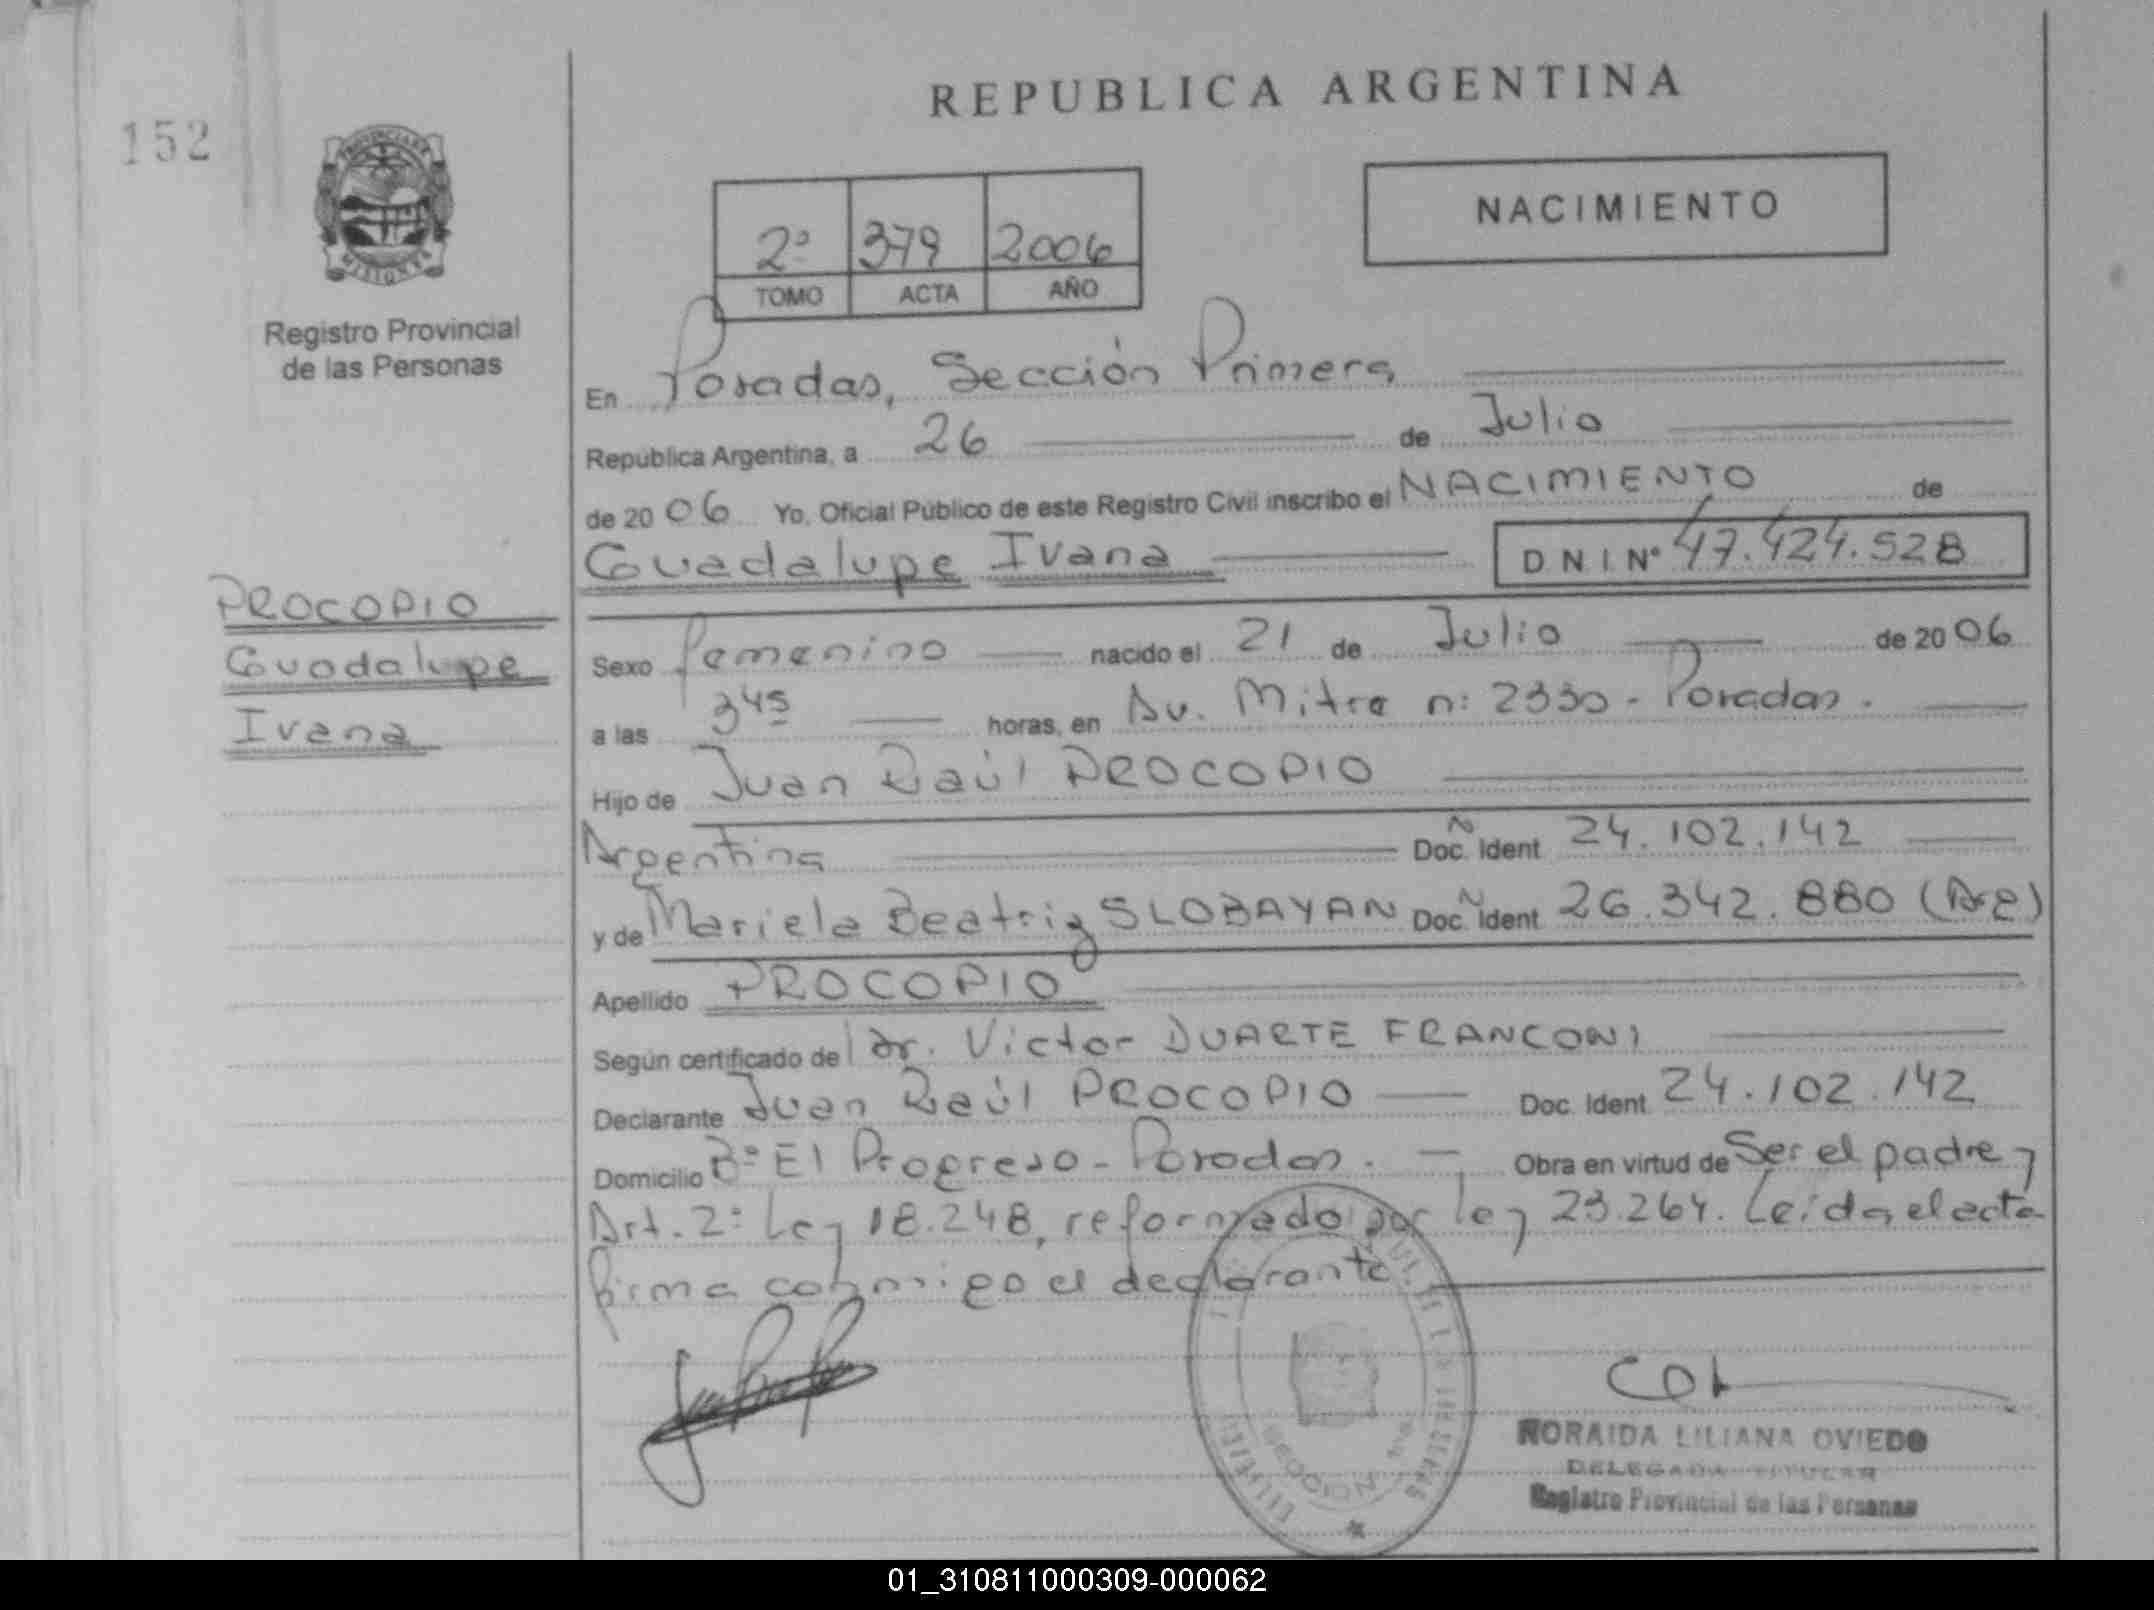 REPUBLICA ARGENTINA
152
PROVINCIA DE
MISIONES
Registro Provincial
de las Personas
NACIMIENTO
2º 379 2006
TOMO ACTA AÑO
En Posadas, Sección Primera
Republica Argentina, a 26 de Julio
de 2006 Yo, Oficial Público de este Registro Civil inscribo el NACIMIENTO de
Guadalupe Ivana DNI Nº 47.424.528
PROCOPIO
Guadalupe
Ivana
Sexo femenino nacido el 21 de Julio de 2006
a las 3 45 horas, en Av. Mitre n: 2330 - Posadas.
Hijo de Juan Raúl PROCOPIO
Argentina Doc. Ident 24.102.142
y de Mariela Beatriz SLOBAYAN Doc. Ident 26.342.880 (Arg)
Apellido PROCOPIO
Según certificado de Dr. Victor DUARTE FRANCONI
Declarante Juan Raúl PROCOPIO Doc. Ident 24.102.142
Domicilio Bº El Progreso - Posadas. Obra en virtud de Ser el padre y
Art. 2º Ley 18.248, reformado por ley 23.264. Leída el acta
firma conmigo el declarante.
SECCION 1ra
NORAIDA LILIANA OVIEDO
DELEGADA TITULAR
Registro Provincial de las Personas
01_310811000309-000062